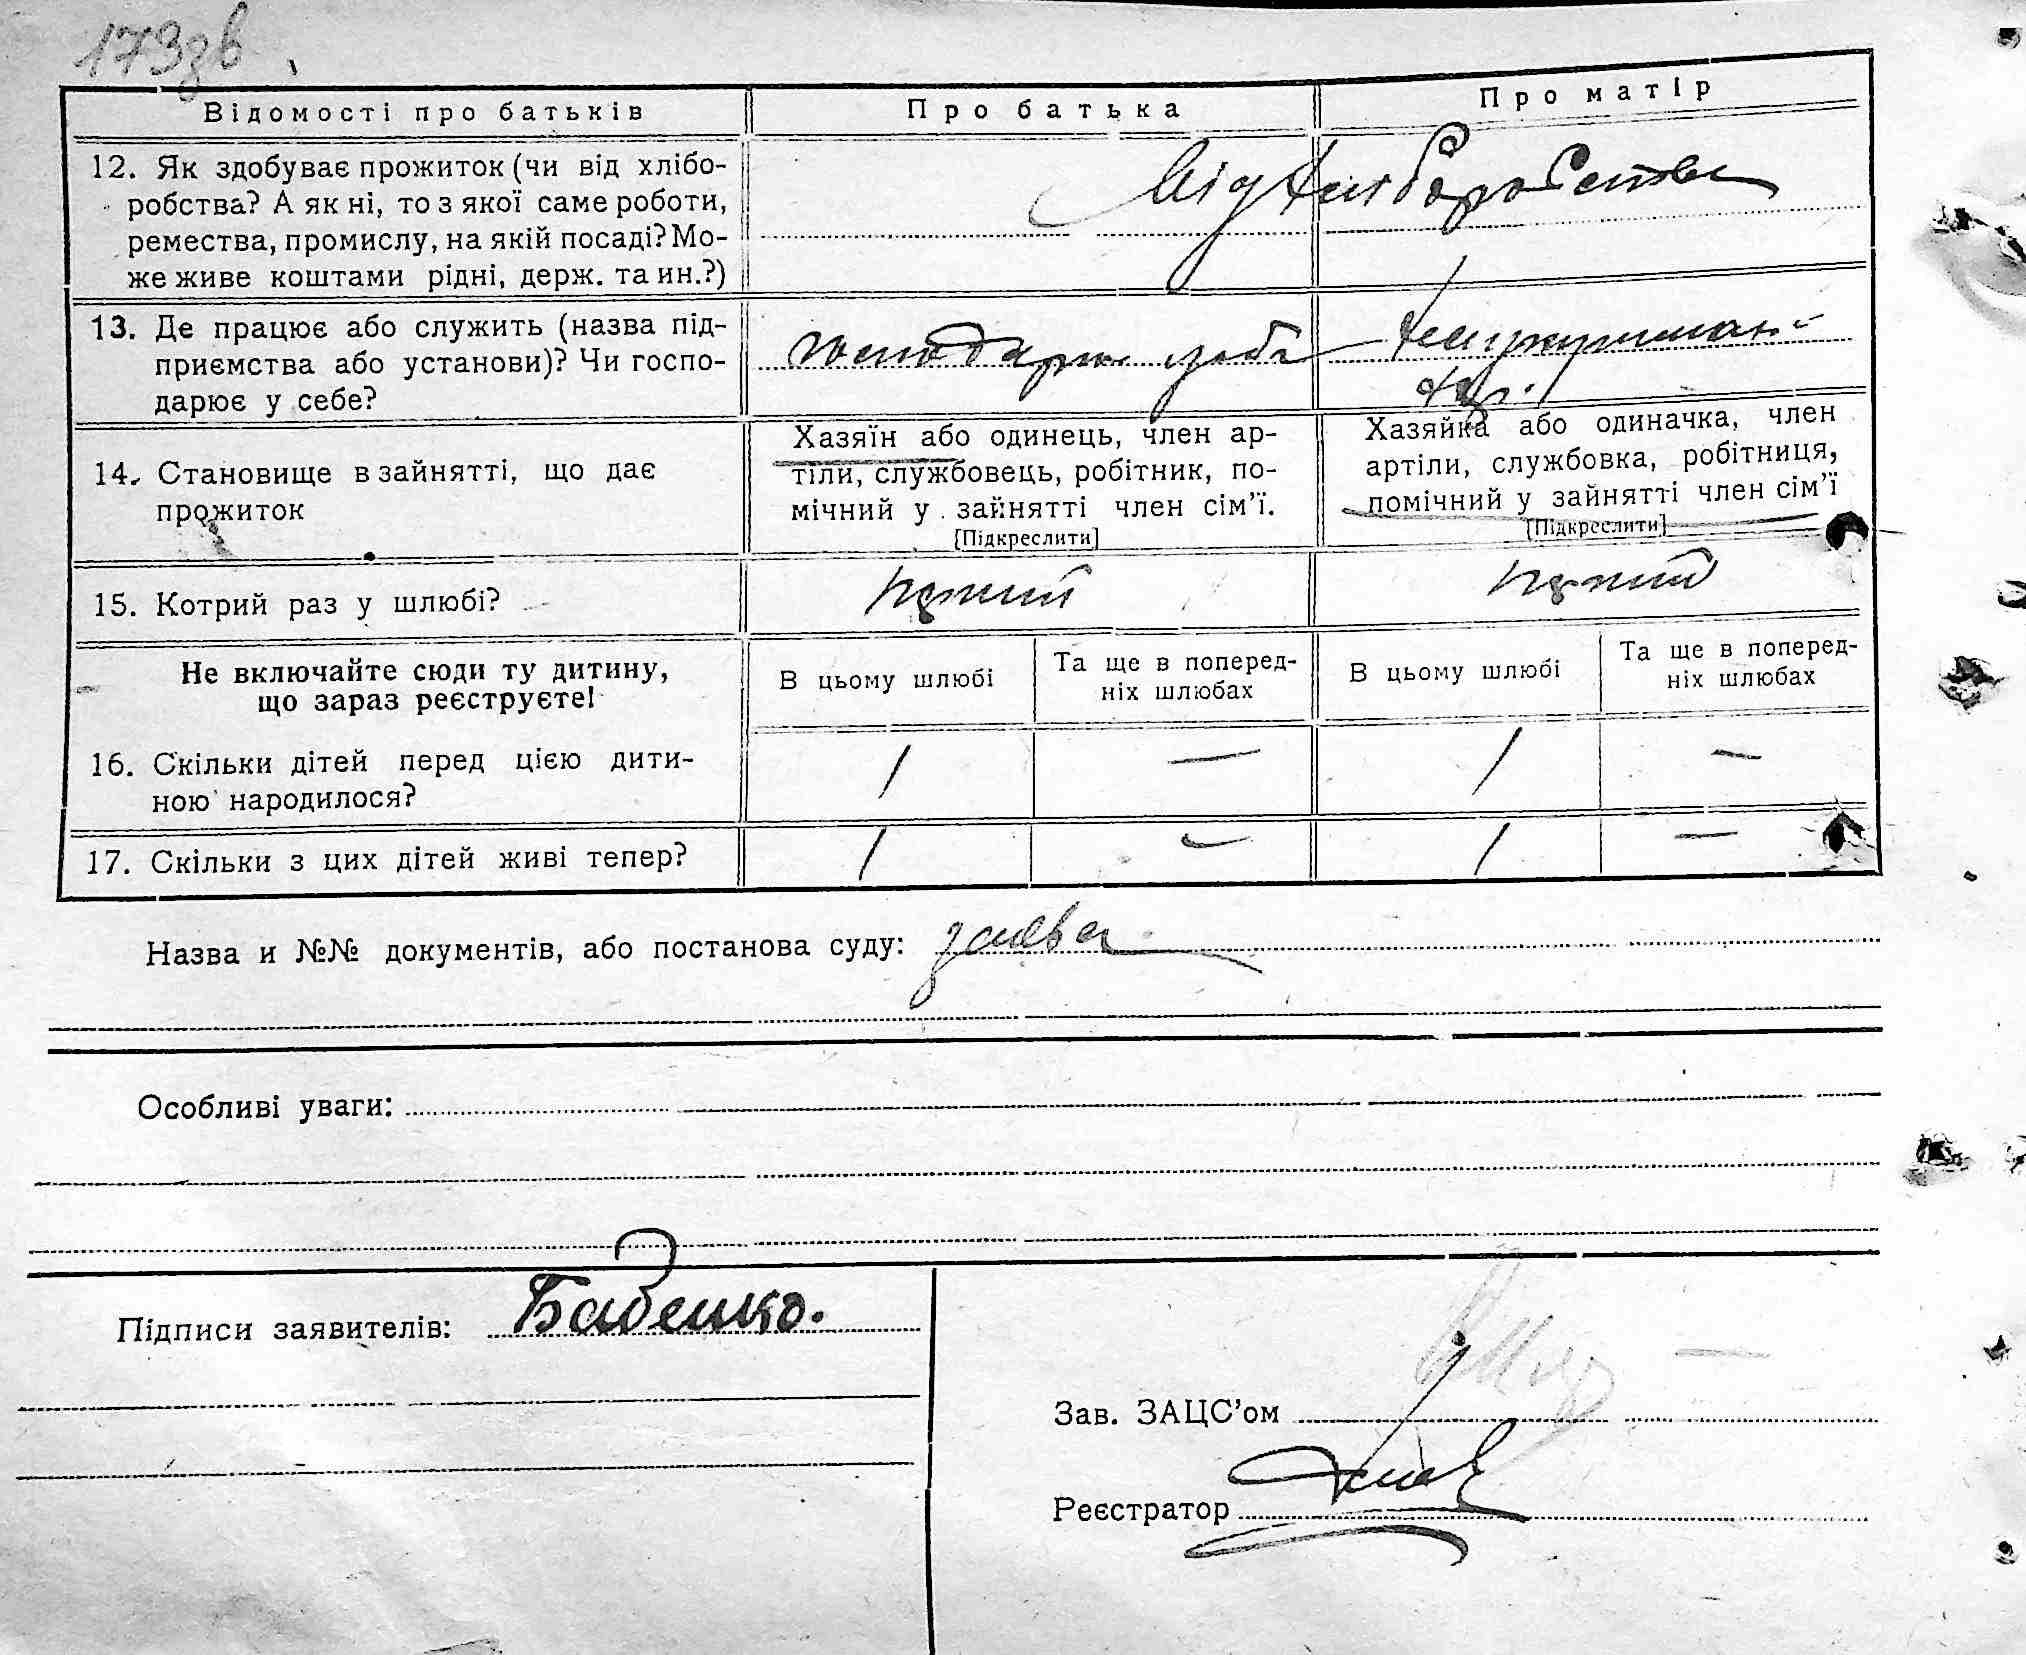 173зв.
Відомості про батьків
Про батька
Про матір
12. Як здобуває прожиток (чи від хлібо-
робства? А як ні, то з якої саме роботи,
ремества, промислу, на якій посаді? Мо-
же живе коштами рідні, держ. та ин.?)
Від хліборобства
13. Де працює або служить (назва під-
приємства або установи)? Чи госпо-
дарює у себе?
господарює у себе
14. Становище в зайнятті, що дає
прожиток
Хазяїн або одинець, член ар-
тіли, службовець, робітник, по-
мічний у зайнятті член сім'ї.
[Підкреслити]
Хазяйка або одиначка, член
артіли, службовка, робітниця,
помічний у зайнятті член сім'ї
[Підкреслити]
15. Котрий раз у шлюбі?
перший
перший
Не включайте сюди ту дитину,
що зараз реєструєте!
В цьому шлюбі
Та ще в поперед-
ніх шлюбах
В цьому шлюбі
Та ще в поперед-
ніх шлюбах
16. Скільки дітей перед цією дити-
ною народилося?
1 — 1 —
17. Скільки з цих дітей живі тепер?
1 — 1 —
Назва и №№ документів, або постанова суду: заява
Особливі уваги:
Підписи заявителів: Бабенко.
Зав. ЗАЦС'ом
Реєстратор